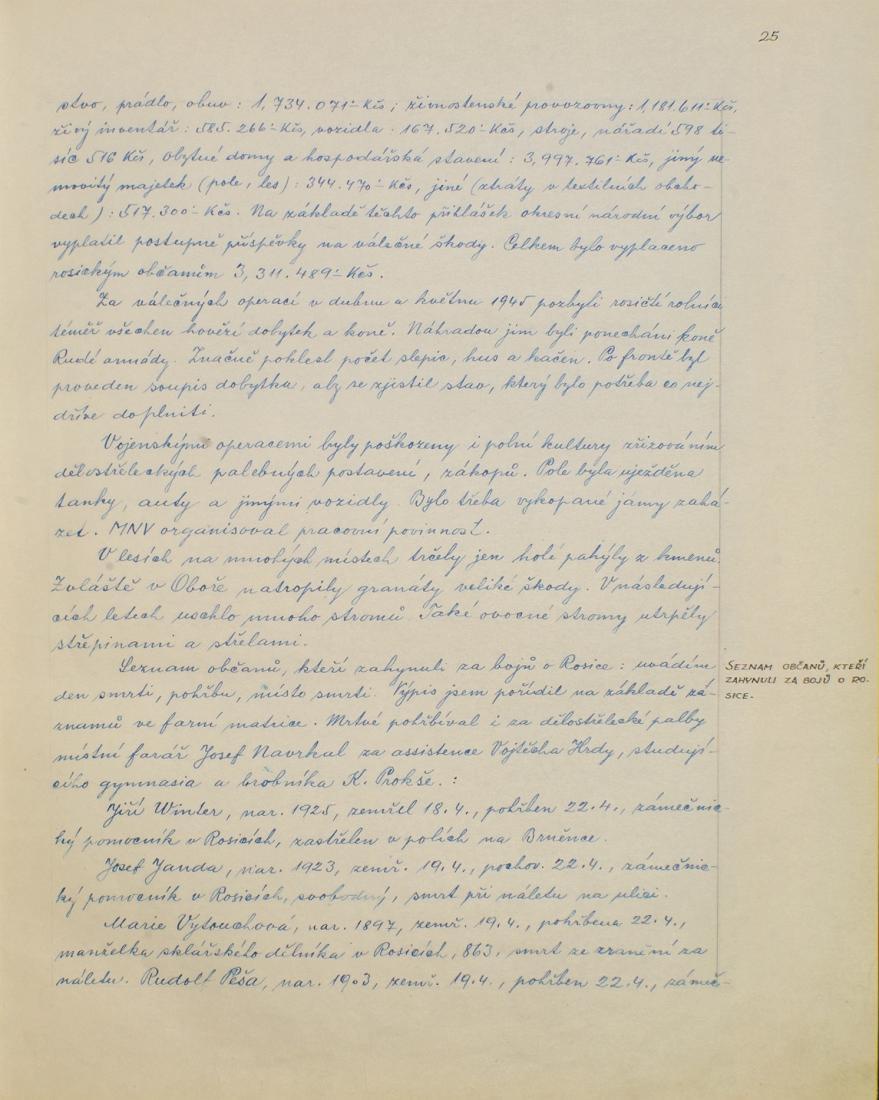 25
stvo, prádlo, obuv : 1,734.071·- Kčs ; živnostenské provozovny : 1,181.611·- Kčs,
živý inventář : 585.266·- Kčs, vozidla 167.520·- Kčs, stroje, nářadí 598 ti-
síc 516 Kčs, obytné domy a hospodářská stavení : 3,997.761·- Kčs, jiný ne-
movitý majetek (pole, les) : 344.470·- Kčs, jiné (ztráty v textilních obcho-
dech) : 517.300·- Kčs. Na základě těchto přihlášek okresní národní výbor
vyplatil postupně příspěvky na válečné škody. Celkem bylo vyplaceno
rosickým občanům 3,311.489·- Kčs.
Za válečných operací v dubnu a květnu 1945 pozbyli rosičtí rolníci
téměř všechen hovězí dobytek a koně. Náhradou jim byli ponecháni koně
Rudé armády. Značně poklesl počet slepic, hus a kačen. Po frontě byl
proveden soupis dobytka, aby se zjistil stav, který bylo potřeba co nej-
dříve doplniti.
Vojenskými operacemi byly poškozeny i polní kultury zřizováním
dělostřeleckých palebných postavení, zákopů. Pole byla uježděna
tanky, auty a jinými vozidly. Bylo třeba vykopané jámy zahá-
zet. MNV organisoval pracovní povinnost.
V lesích na mnohých místech trčely jen holé pahýly z kmenů.
Zvláště v Oboře natropily granáty veliké škody. V následují-
cích letech uschlo mnoho stromů. Také ovocné stromy utrpěly
střepinami a střelami.
Seznam občanů, kteří zahynuli za bojů o Rosice : uvádím
den smrti, pohřbu, místo smrti. Výpis jsem pořídil na základě zá-
znamů ve farní matrice. Mrtvé pohřbíval i za dělostřelecké palby
místní farář Josef Navrkal za assistence Vojtěcha Hrdy, studují-
cího gymnasia a hrobníka K. Prokše. :
Jiří Winter, nar. 1925, zemřel 18.4., pohřben 22.4., zámečnic-
ký pomocník v Rosicích, zastřelen v polích na Brněnce.
Josef Janda, nar. 1923, zemř. 19.4., pochov. 22.4., zámečnic-
ký pomocník v Rosicích, svobodný, smrt při náletu na ulici.
Marie Vytouchová, nar. 1897, zemř. 19.4., pohřbena 22.4.,
manželka sklářského dělníka v Rosicích, 863, smrt ze zranění za
náletu. Rudolf Peša, nar. 1903, zemř. 19.4., pohřben 22.4., zámeč-
SEZNAM OBČANŮ, KTEŘÍ
ZAHYNULI ZA BOJŮ O RO-
SICE.